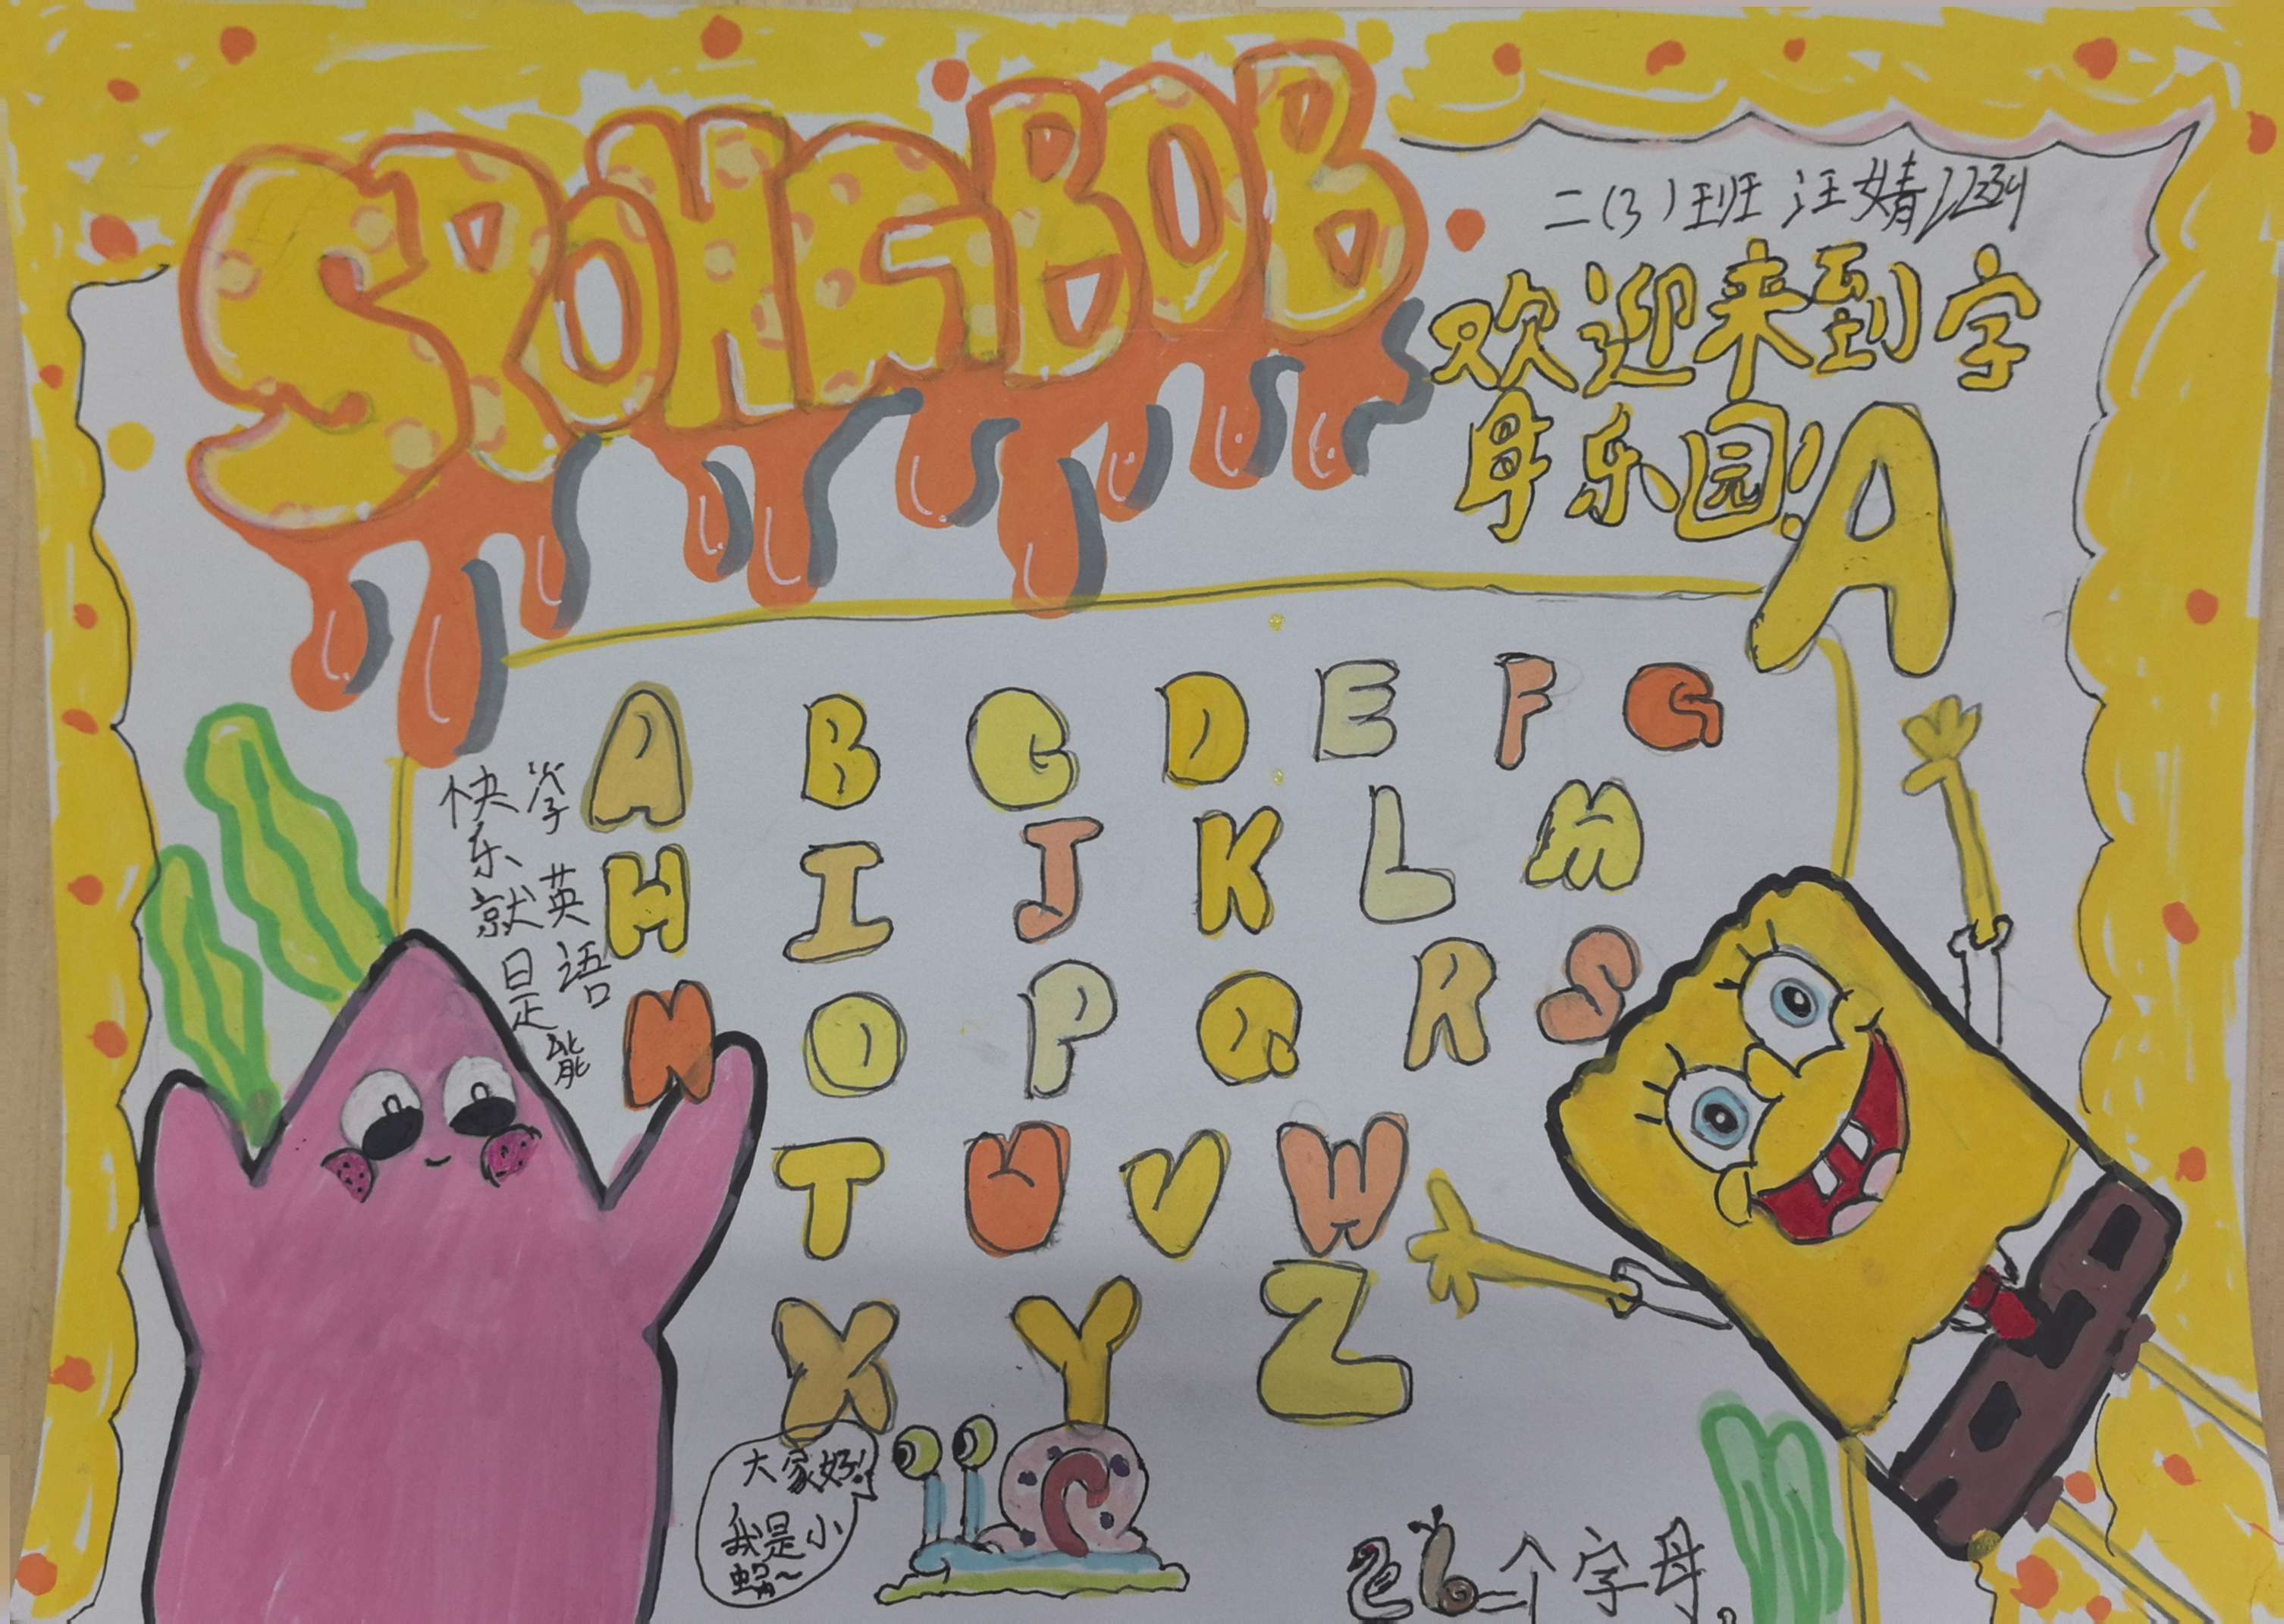 SPONGBOB
二(3)班 汪婧
欢迎来到字
母乐园!
A
A B C D E F G
H I J K L M
N O P Q R S
T U V W
X Y Z
快乐就是
学英语能
大家好!
我是小
蜗~
26个字母。